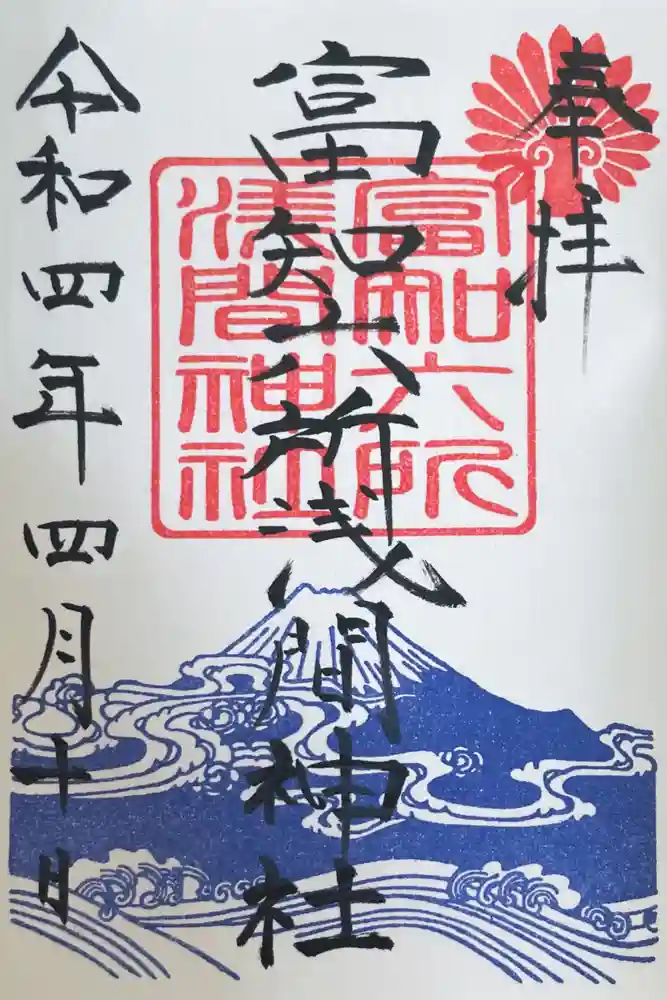 奉拝
富知六所浅間神社
富知六所
浅間神社
令和四年四月十日